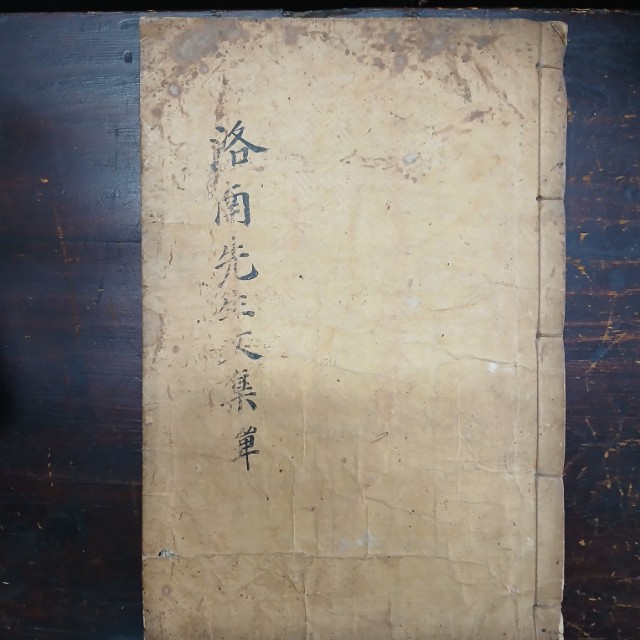 洛南先生文集單